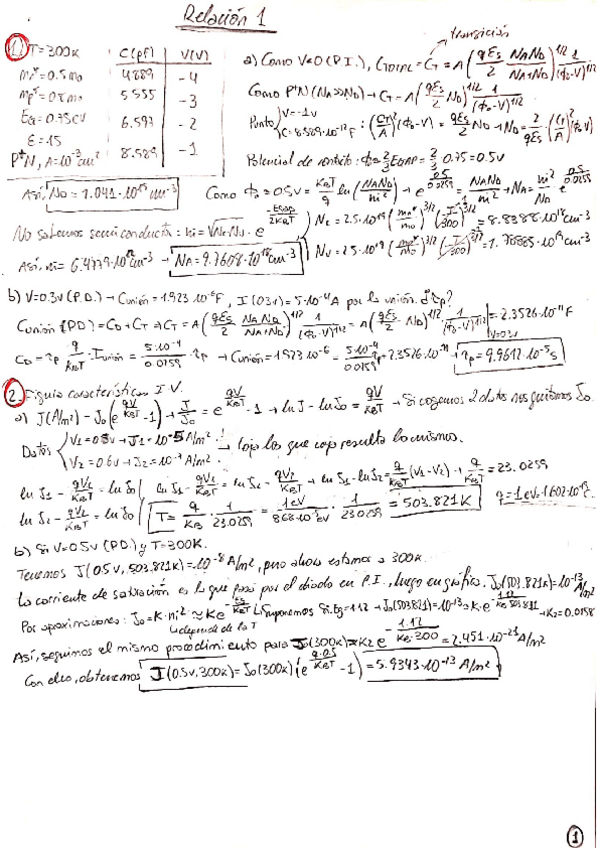 Relación 1
transición
1) T=300K C(pF) V(V) a) Como V<0 (P.I.), CTOTAL = CT = A (qEs/2 NAND/(NA+ND))^1/2 1/(ϕ0-V)^1/2
mn*=0.5m0 4889 -4
mp*= 5.555 -3 Como P+N (NA>>ND) → CT = A (qEs/2 ND)^1/2 1/(ϕ0-V)^1/2
EG=0.75eV 6.597 -2 Punto { V=-1V
E=15 8.589 -1 C=8.589·10^-12 F : (CT/A)^2 (ϕ0-V) = qEs/2 ND → ND = 2/qEs (CT/A)^2 (ϕ0-V)
P+N, A=10^-3 cm2 Potencial de contacto: ϕ0 = 2/3 EGAP = 2/3 0.75 = 0.5V
Así, ND = 1.041·10^15 cm^-3 Como ϕ0=0.5V = KBT/q ln(NAND/ni^2) → e^(0.5/0.0259) = NAND/ni^2 → NA = ni^2/ND e^(0.5/0.0259)
No sabemos semiconductor: ni = √NcNv · e^(-EGAP/2KBT) { Nc = 2.5·10^19 (mn*/m0)^3/2 (T/300)^3/2 = 8.8388·10^18 cm^-3
Así, ni = 6.4779·10^12 cm^-3 → NA = 9.7608·10^18 cm^-3 Nv = 2.5·10^19 (mp*/m0)^3/2 (T/300)^3/2 = 1.78885·10^19 cm^-3
b) V=0.3V (P.D.) → Cunión = 1.923·10^-6 F, I(0.3V) = 5·10^-4 A por la unión. ¿τp?
Cunión (PD) = CD + CT → CT = A (qEs/2 NAND/(NA+ND))^1/2 1/(ϕ0-V)^1/2 = A (qEs/2 ND)^1/2 1/(ϕ0-V)^1/2 |V=0.3V = 2.3526·10^-11 F
CD = τp q/KBT · Iunión = 5·10^-4/0.0259 · τp → Cunión = 1.923·10^-6 = 5·10^-4/0.0259 τp + 2.3526·10^-11 → τp = 9.9612·10^-5 s
2) Figura características I-V.
a) J(A/m2) = J0 (e^(qV/KBT) - 1) → J/J0 = e^(qV/KBT) - 1 → ln J - ln J0 = qV/KBT → Si cogemos 2 datos nos quitamos J0
Datos { V1 = 0.8V → J1 = 10^-5 A/m2
V2 = 0.6V → J2 = 10^-7 A/m2. → coja los que coja resulta lo mismo.
ln J1 - qV1/KBT = ln J0 | ln J1 - qV1/KBT = ln J2 - qV2/KBT → ln J1 - ln J2 = q/KBT (V1-V2) → q/KBT = 23.0259
ln J2 - qV2/KBT = ln J0 | T = q/KB · 1/23.0259 = 1eV/8.68·10^-5 eV · 1/23.0259 = 503.821K q=1eV=1.602·10^-19C.
b) Si V=0.5V (P.D.) y T=300K.
Tenemos J(0.5V, 503.821K) = 10^-8 A/m2, pero ahora estamos a 300K.
La corriente de saturación es la que pasa por el diodo en P.I., luego en gráfica. J0(503.821K) = 10^-13 A/m2
Por aproximaciones: J0 = K·ni^2 ≈ K e^(-EG/KBT) Suponemos Si. Eg=1.12 → J0(503.821) = 10^-13 = K·e^(-1.12/KB 503.821) → K2 = 0.0158
depende de la T
Así, seguimos el mismo procedimiento para J0(300K) ≈ K2 e^(-1.12/KB·300) = 2.451·10^-23 A/m2
Con ello, obtenemos J(0.5V, 300K) = J0(300K) (e^(q·0.5/KBT) - 1) = 5.9343·10^-13 A/m2
1